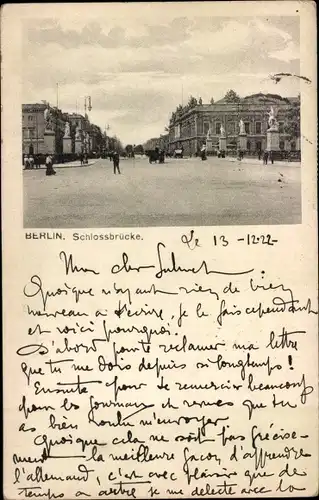 BERLIN. Schlossbrücke.
Le 13-12-22
Mon cher
Quoique n'ayant rien de bien
nouveau à t'écrire, je le fais cependant
et voici pourquoi.
D'abord pour te réclamer ma lettre
que tu me dois depuis si longtemps!
Ensuite pour te remercier beaucoup
pour les journaux et revues que tu
as bien voulu m'envoyer.
Quoique cela ne soit pas précise-
ment la meilleure façon d'apprendre
l'allemand, c'est avec plaisir que de
temps à autre je me délecte avec la